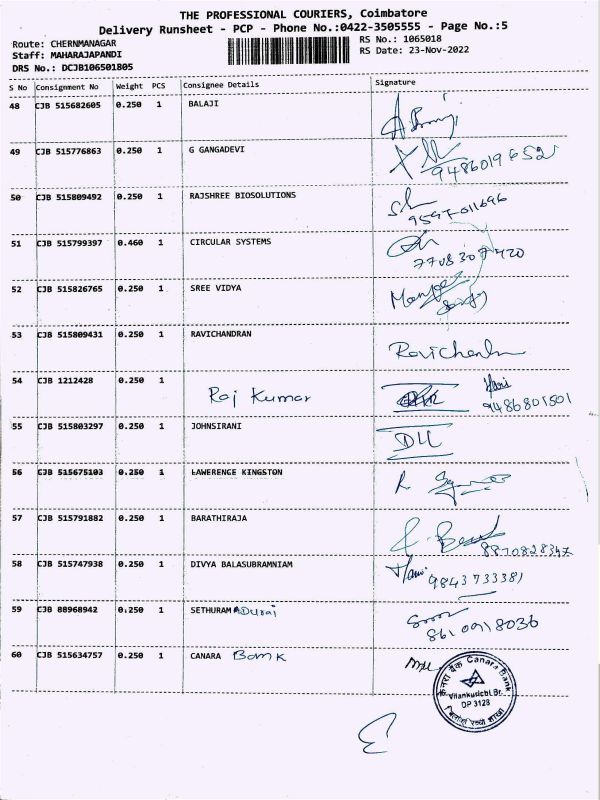 THE PROFESSIONAL COURIERS, Coimbatore
Delivery Runsheet - PCP - Phone No.:0422-3505555 - Page No.:5
Route: CHERNMANAGAR RS No.: 1065018
Staff: MAHARAJAPANDI RS Date: 23-Nov-2022
DRS No.: DCJB106501805
S No Consignment No Weight PCS Consignee Details Signature
48 CJB 515682605 0.250 1 BALAJI
49 CJB 515776863 0.250 1 G GANGADEVI 9486019652
50 CJB 515809492 0.250 1 RAJSHREE BIOSOLUTIONS 9597011696
51 CJB 515799397 0.460 1 CIRCULAR SYSTEMS 7708307420
52 CJB 515826765 0.250 1 SREE VIDYA
53 CJB 515809431 0.250 1 RAVICHANDRAN Ravichandran
54 CJB 1212428 0.250 1 Raj Kumar 9486801501
55 CJB 515803297 0.250 1 JOHNSIRANI
56 CJB 515675103 0.250 1 LAWERENCE KINGSTON
57 CJB 515791882 0.250 1 BARATHIRAJA 8870828347
58 CJB 515747938 0.250 1 DIVYA BALASUBRAMNIAM 9843733381
59 CJB 88968942 0.250 1 SETHURAMADURAI 8610918036
60 CJB 515634757 0.250 1 CANARA Bank
केनरा बैंक Canara Bank
DP 3128